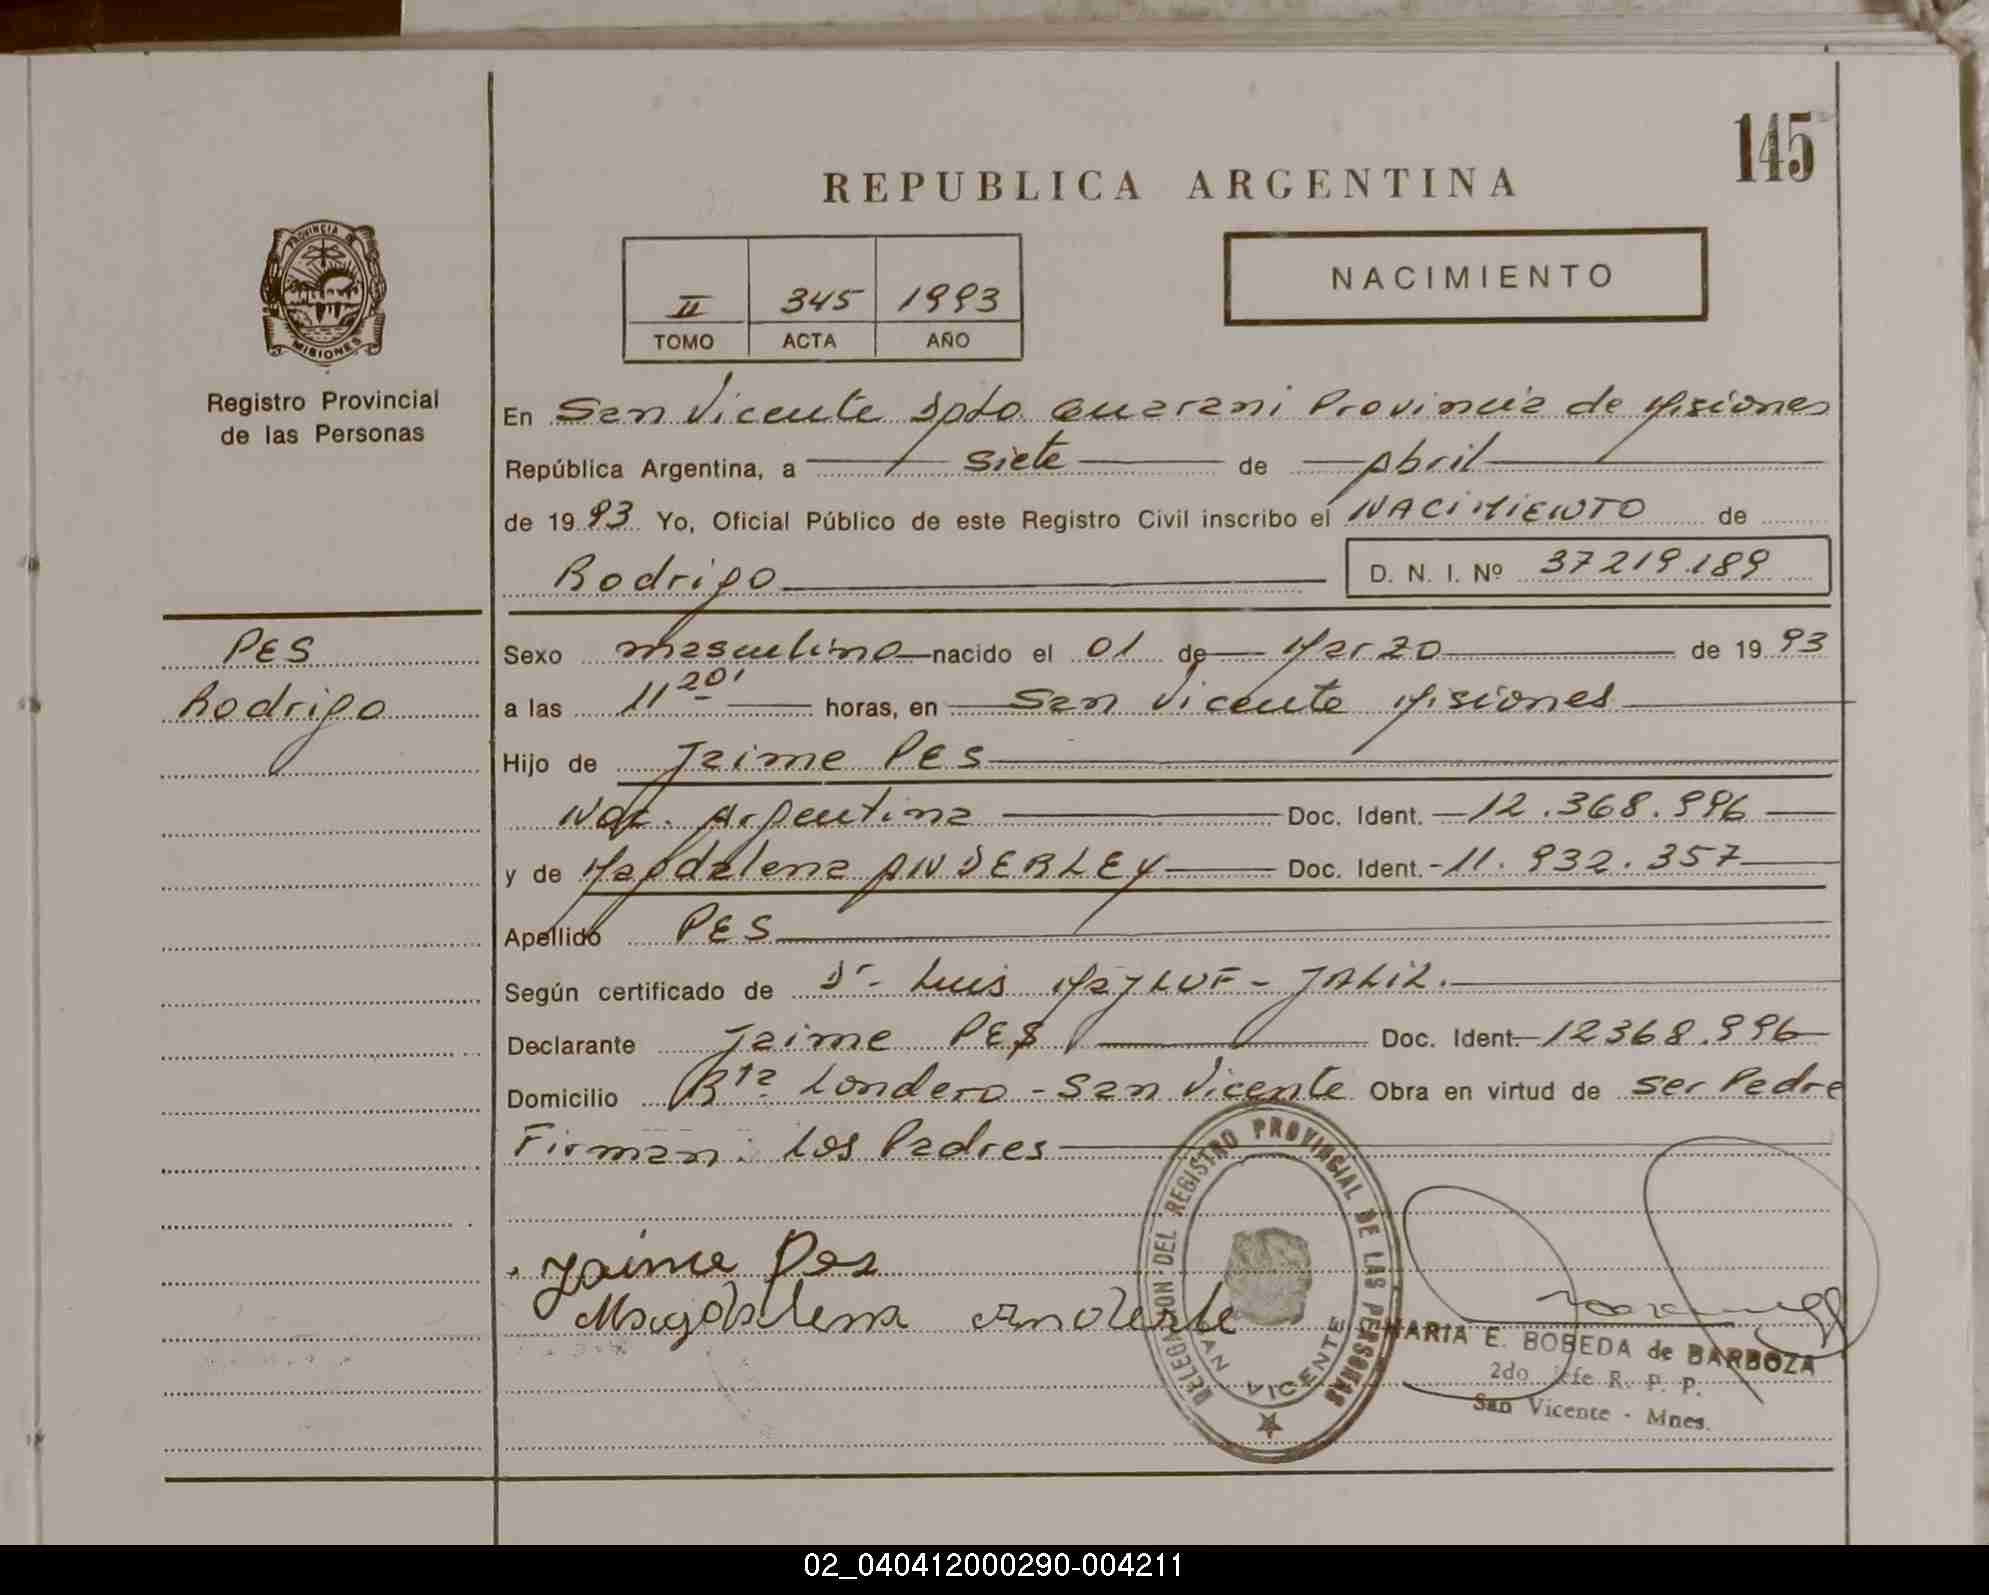 145
REPUBLICA ARGENTINA
PROVINCIA DE
MISIONES
Registro Provincial
de las Personas
II 345 1993
TOMO ACTA AÑO
NACIMIENTO
En San Vicente Dpto Guarani Provincia de Misiones
República Argentina, a siete de Abril
de 1993 Yo, Oficial Público de este Registro Civil inscribo el NACIMIENTO de
Rodrigo D. N. I. Nº 37219.189
PES
Rodrigo
Sexo masculino nacido el 01 de Marzo de 1993
a las 11 20' horas, en San Vicente Misiones
Hijo de Jaime PES
Nac. Argentina Doc. Ident. 12.368.996
y de Magdalena ANDERLEY Doc. Ident. 11.932.357
Apellido PES
Según certificado de Dr- Luis MaJLUF - JALIL.
Declarante Jaime PES Doc. Ident. 12368.996
Domicilio Rta Londero - San Vicente Obra en virtud de ser Padre
Firman: Los Padres
Jaime Pes
Magdalena Anderle
DELEGACION DEL REGISTRO PROVINCIAL DE LAS PERSONAS
SAN VICENTE
MARIA E. BOBEDA de BARBOZA
2do Jefe R. P. P.
San Vicente - Mnes.
02_040412000290-004211